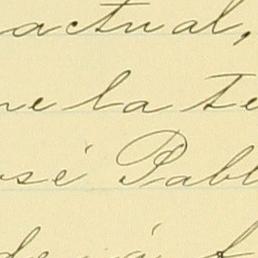 actual,
ne la te
osé Pabl
de